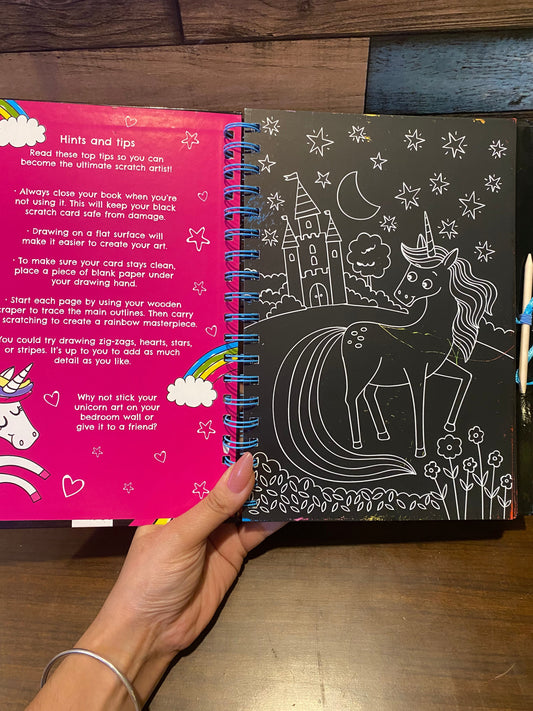 Hints and tips
Read these top tips so you can
become the ultimate scratch artist!
· Always close your book when you're
not using it. This will keep your black
scratch card safe from damage.
· Drawing on a flat surface will
make it easier to create your art.
· To make sure your card stays clean,
place a piece of blank paper under
your drawing hand.
· Start each page by using your wooden
scraper to trace the main outlines. Then carry
scratching to create a rainbow masterpiece.
You could try drawing zig-zags, hearts, stars,
or stripes. It's up to you to add as much
detail as you like.
Why not stick your
unicorn art on your
bedroom wall or
give it to a friend?